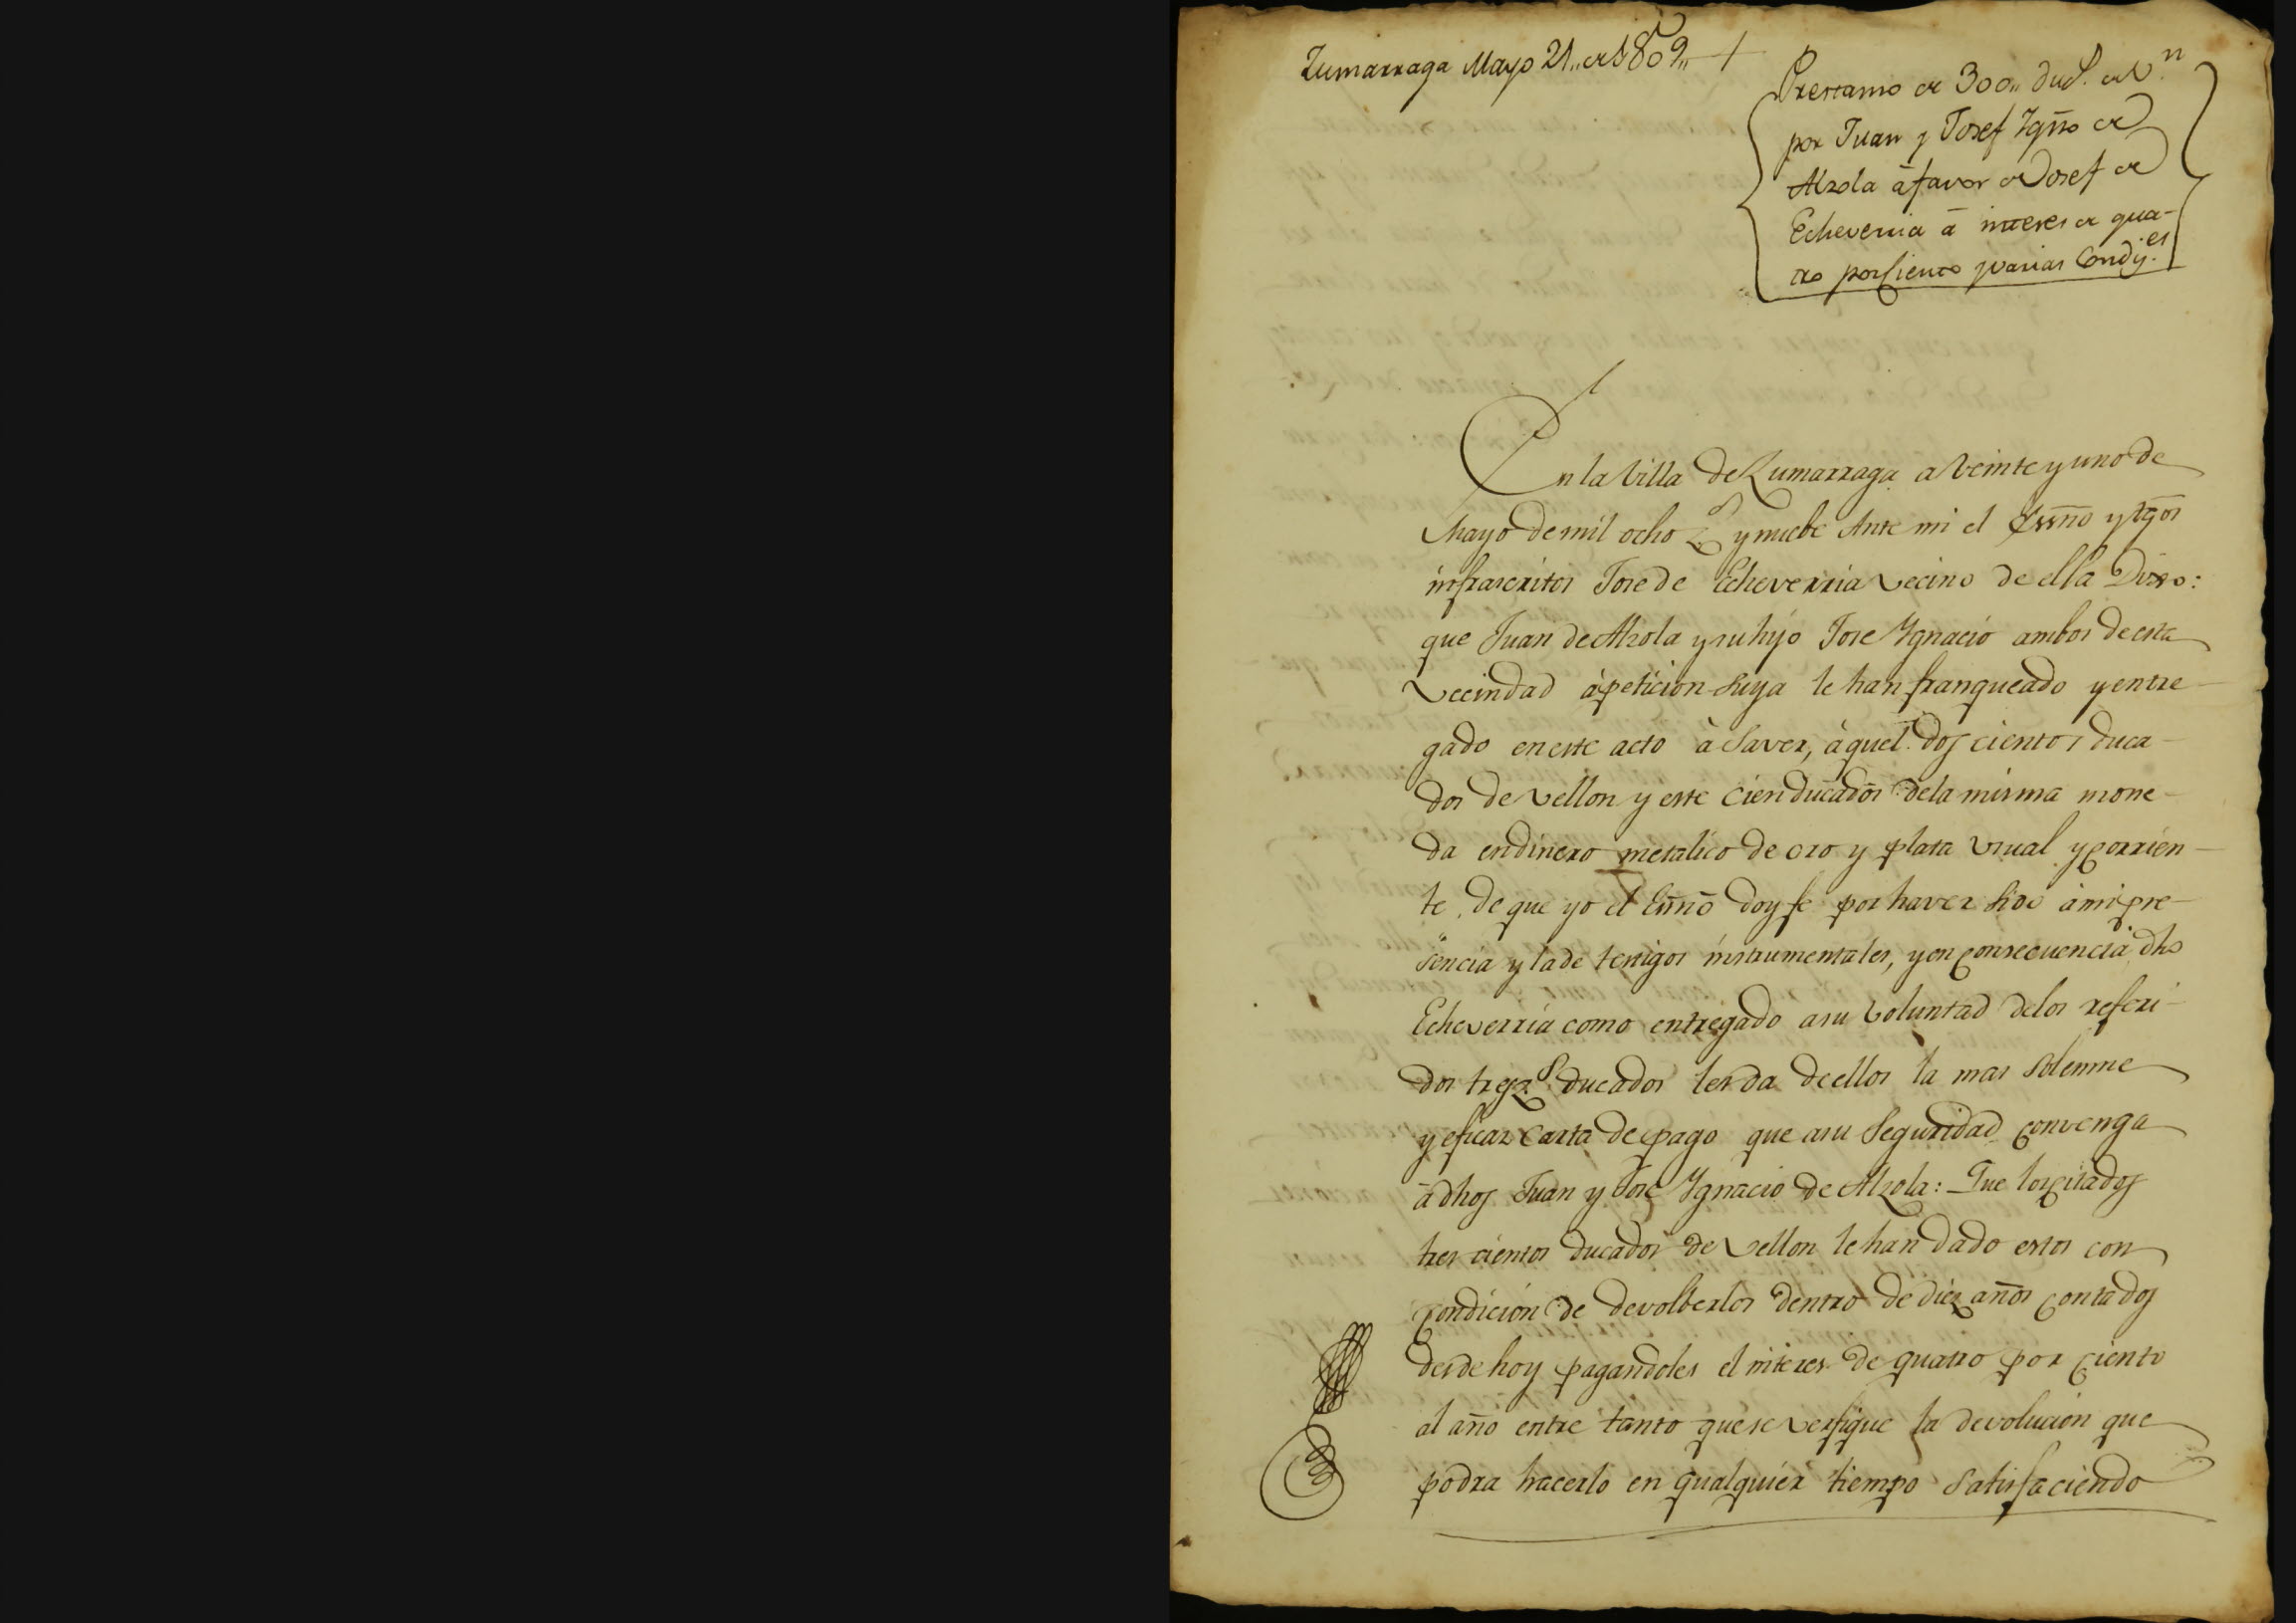 Zumarraga Mayo 21,, de 1809,, +
Prestamo de 300,, duc.s de V.n
por Juan y Josef Ygño de
Alzola á favor de Josef de
Echeverria á interes de qua-
tro por Ciento y varias Condiz.es
En la Villa de Zumarraga a Veinte y uno de
Mayo de mil ocho z.s y nuebe Ante mi el Essño y tgos
infrascritos Jose de Echeverria vecino de ella Dixo:
que Juan de Alzola y su hijo Jose Ygnacio ambos de esta
Vecindad á peticion suya le han franqueado y entre-
gado en este acto á Saver, aquel dos cientos duca-
dos de vellon y este cien ducados de la misma mone-
da en dinero metalico de oro y plata usual y corrien-
te, de que yo el Essño doy fe por haver sido á mi pre-
sencia y la de testigos instrumentales, y en consecuencia dho
Echeverria como entregado a su voluntad de los referi-
dos trez.s ducados les da de ellos la mas Solemne
y eficaz Carta de pago que a su Seguridad convenga
á dhos Juan y Jose Ygnacio de Alzola: Que los citados
tres cientos ducados de vellon le han dado estos con
condicion de devolberlos dentro de diez años contados
desde hoy pagandoles el interes de quatro por ciento
al año entre tanto que se verifique la devolucion que
podra hacerlo en qualquier tiempo Satisfaciendo